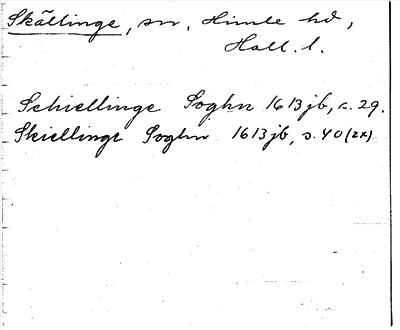 Skällinge, sn, Himle hd,
Hall. l.
Schiellinge Soghn 1613 jb, s. 29.
Skiellinge Soghn 1613 jb, s. 40 (2x)